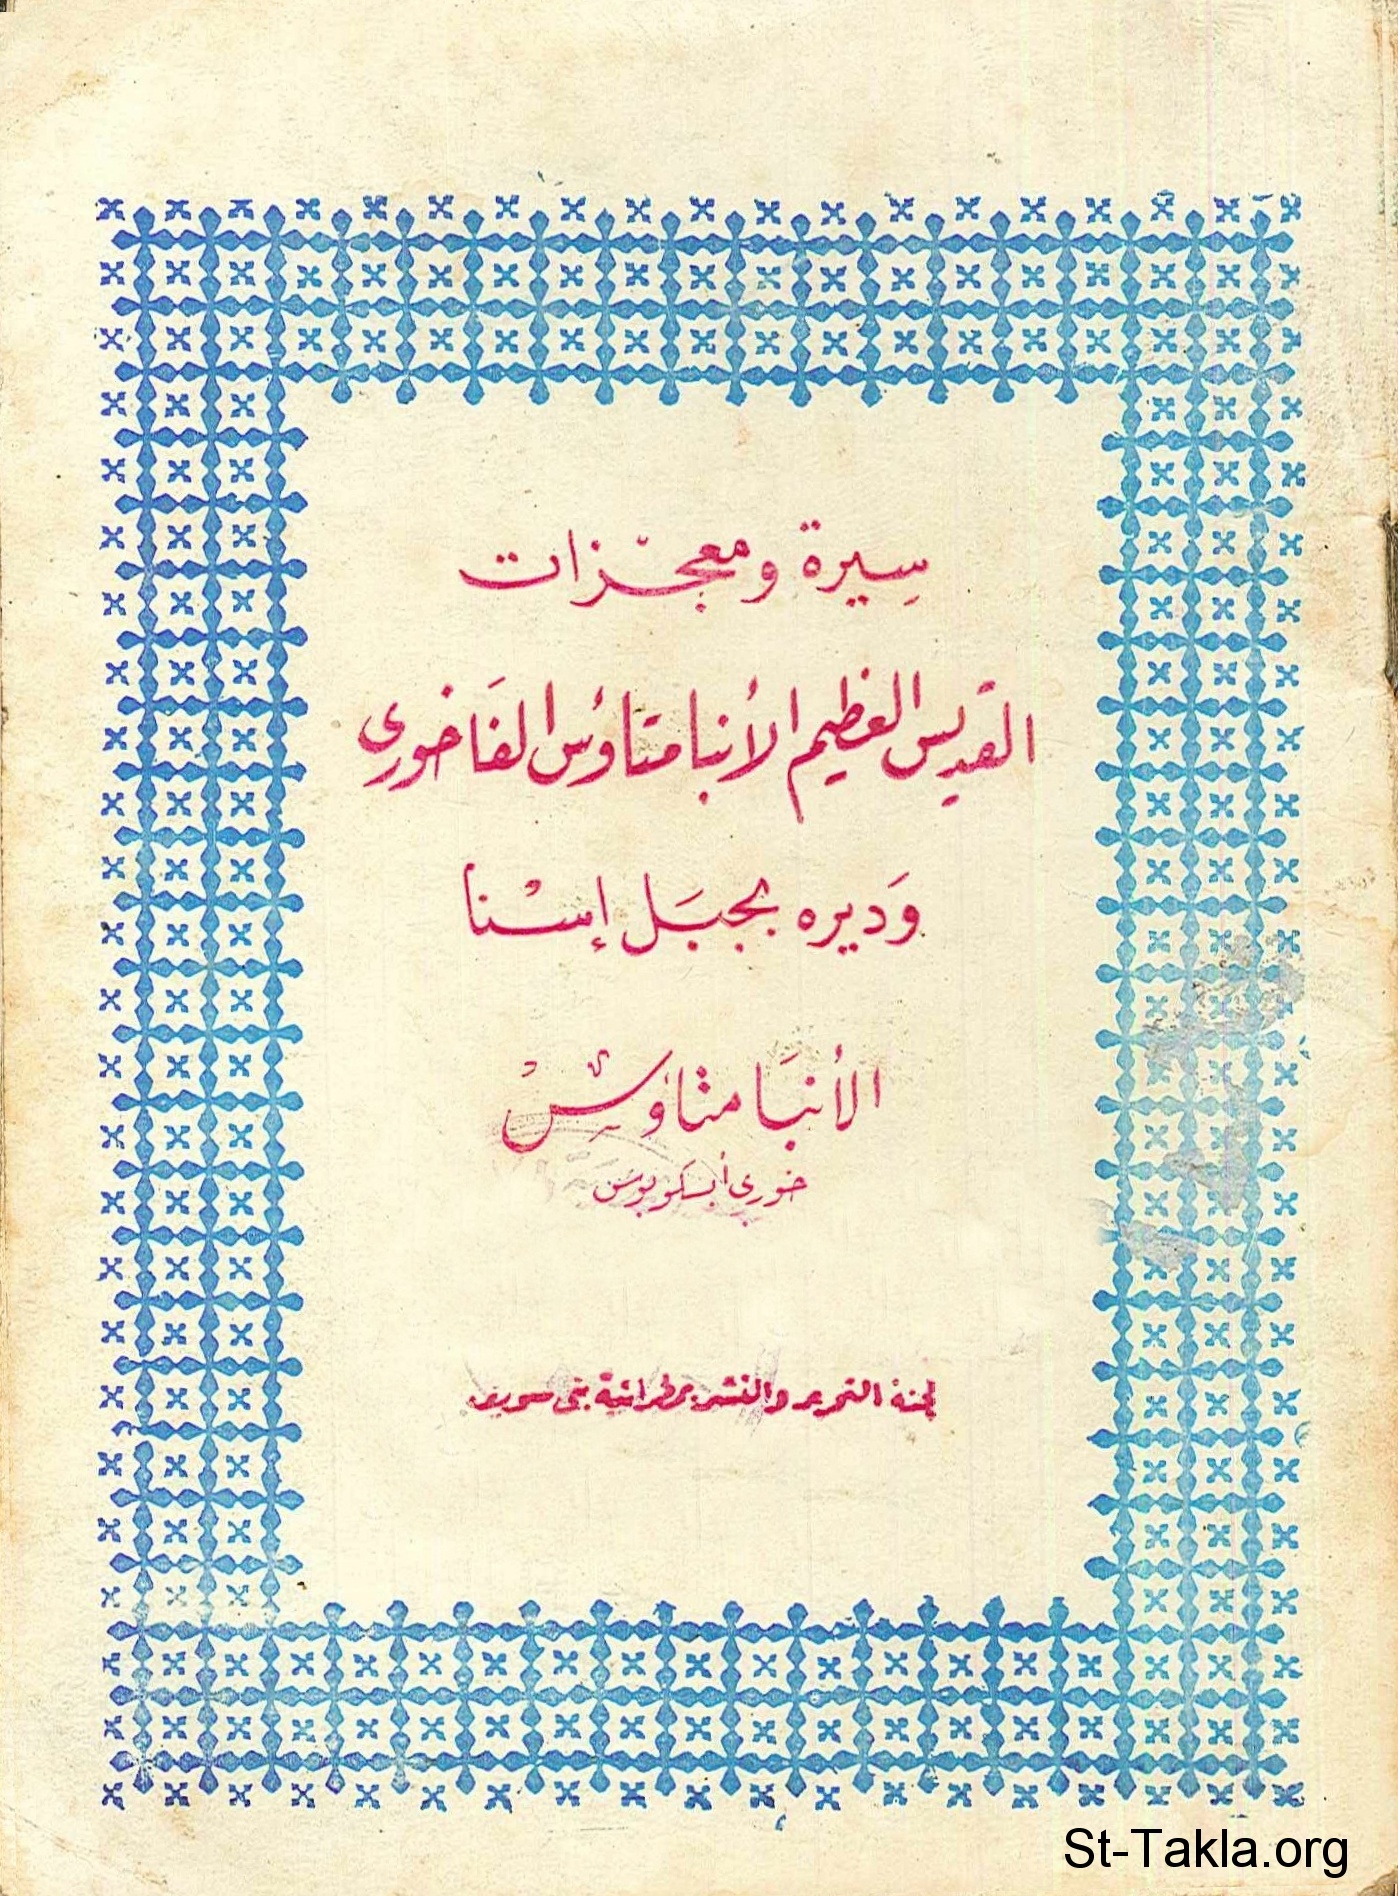 سيرة ومعجزات
القديس العظيم الأنبا متاؤس الفاخوري
وديره بجبل إسنا
الأنبا متاؤس
خورى أبسكوبوس
لجنة التحرير والنشر بمطرانية بنى سويف
St-Takla.org